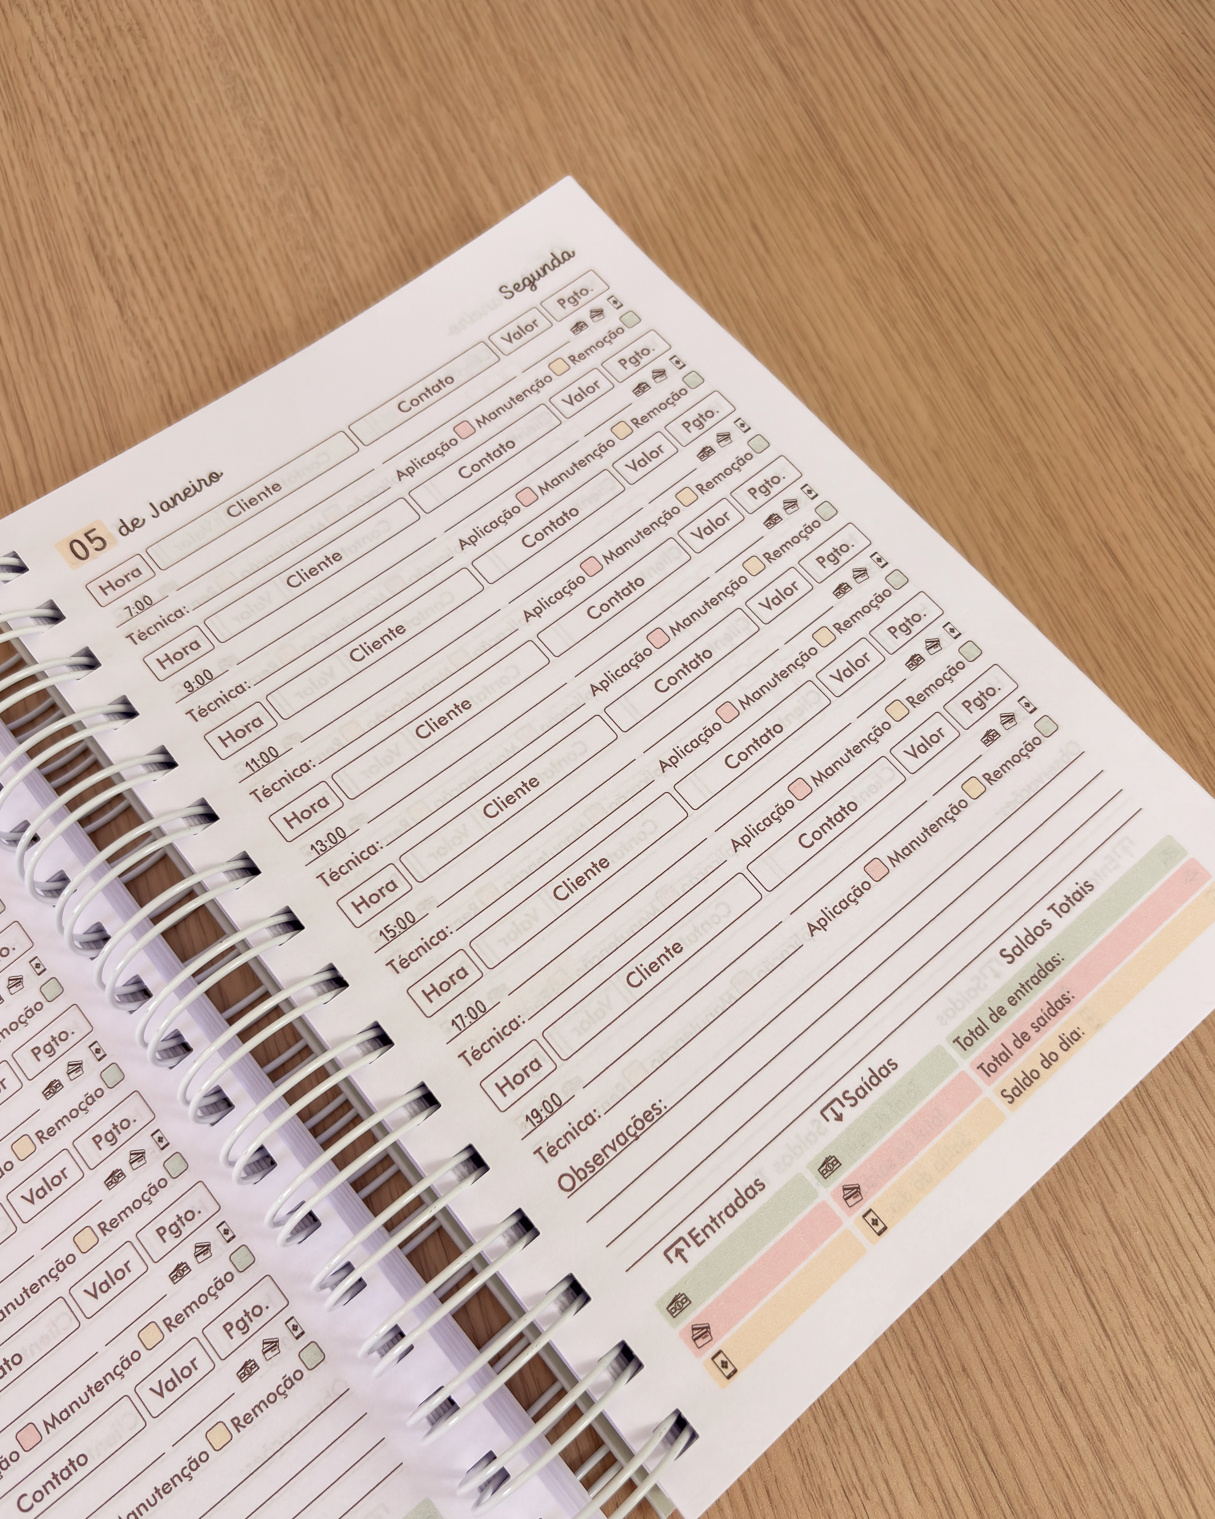 05 de Janeiro Segunda
Hora Cliente Contato Valor Pgto.
7:00
Técnica: Aplicação Manutenção Remoção
Hora Cliente Contato Valor Pgto.
9:00
Técnica: Aplicação Manutenção Remoção
Hora Cliente Contato Valor Pgto.
11:00
Técnica: Aplicação Manutenção Remoção
Hora Cliente Contato Valor Pgto.
13:00
Técnica: Aplicação Manutenção Remoção
Hora Cliente Contato Valor Pgto.
15:00
Técnica: Aplicação Manutenção Remoção
Hora Cliente Contato Valor Pgto.
17:00
Técnica: Aplicação Manutenção Remoção
Hora Cliente Contato Valor Pgto.
19:00
Técnica: Aplicação Manutenção Remoção
Observações:
Entradas Saídas Saldos Totais
Total de entradas:
Total de saídas:
Saldo do dia:
Pgto.
Remoção
Valor Pgto.
Manutenção Remoção
Valor Pgto.
Manutenção Remoção
Contato Valor Pgto.
Manutenção Remoção